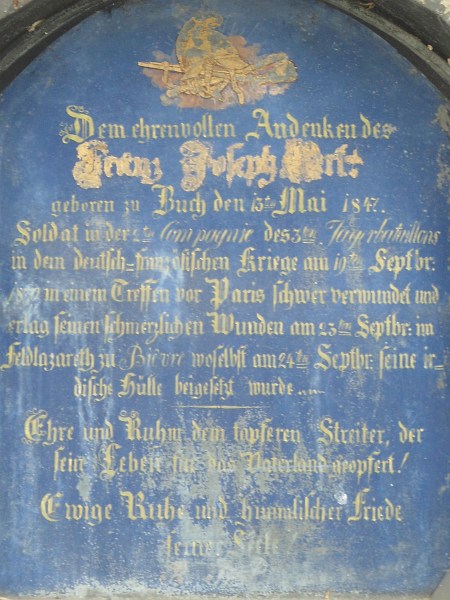 Dem ehrenvollen Andenken des
Franz Joseph
geboren zu Buch den 13ten Mai 1847.
Soldat in der 2ten Compagnie des 3ten Jägerbataillons
in dem deutsch=französischen Kriege am 19ten Septbr:
1870 in einem Treffen vor Paris schwer verwundet und
erlag seinen schmerzlichen Wunden am 23ten Septbr: im
Feldlazareth zu Bièvre woselbst am 24ten Septbr: seine ir=
dische Hülle beigesetzt wurde
Ehre und Ruhm dem tapferen Streiter, der
sein Leben für das Vaterland geopfert!
Ewige Ruhe und himmlischer Friede
seiner Seele